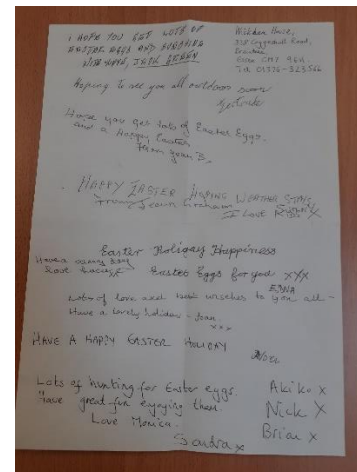 I HOPE YOU GET LOTS OF
EASTER EGGS AND
WITH LOVE, JEAN GREEN
House,
Coggeshall Road,
Hoping to see you all outdoors soon
Gertrude
Hope you get lots of Easter Eggs.
and a Happy Easter
from Joan B,
HAPPY EASTER HOPING WEATHER STAYS
From Jean Graham
I Love
Easter Holiday Happiness
Have a sunny
Easter Eggs for you xxx
EDNA
Lots of love and wishes to you all -
Have a lovely holiday - Joan.
xxx
HAVE A HAPPY EASTER HOLIDAY
Lots of hunting for Easter eggs
Have great fun enjoying them.
Love Monica.
Sandra x
Akiko x
Nick X
Brian x